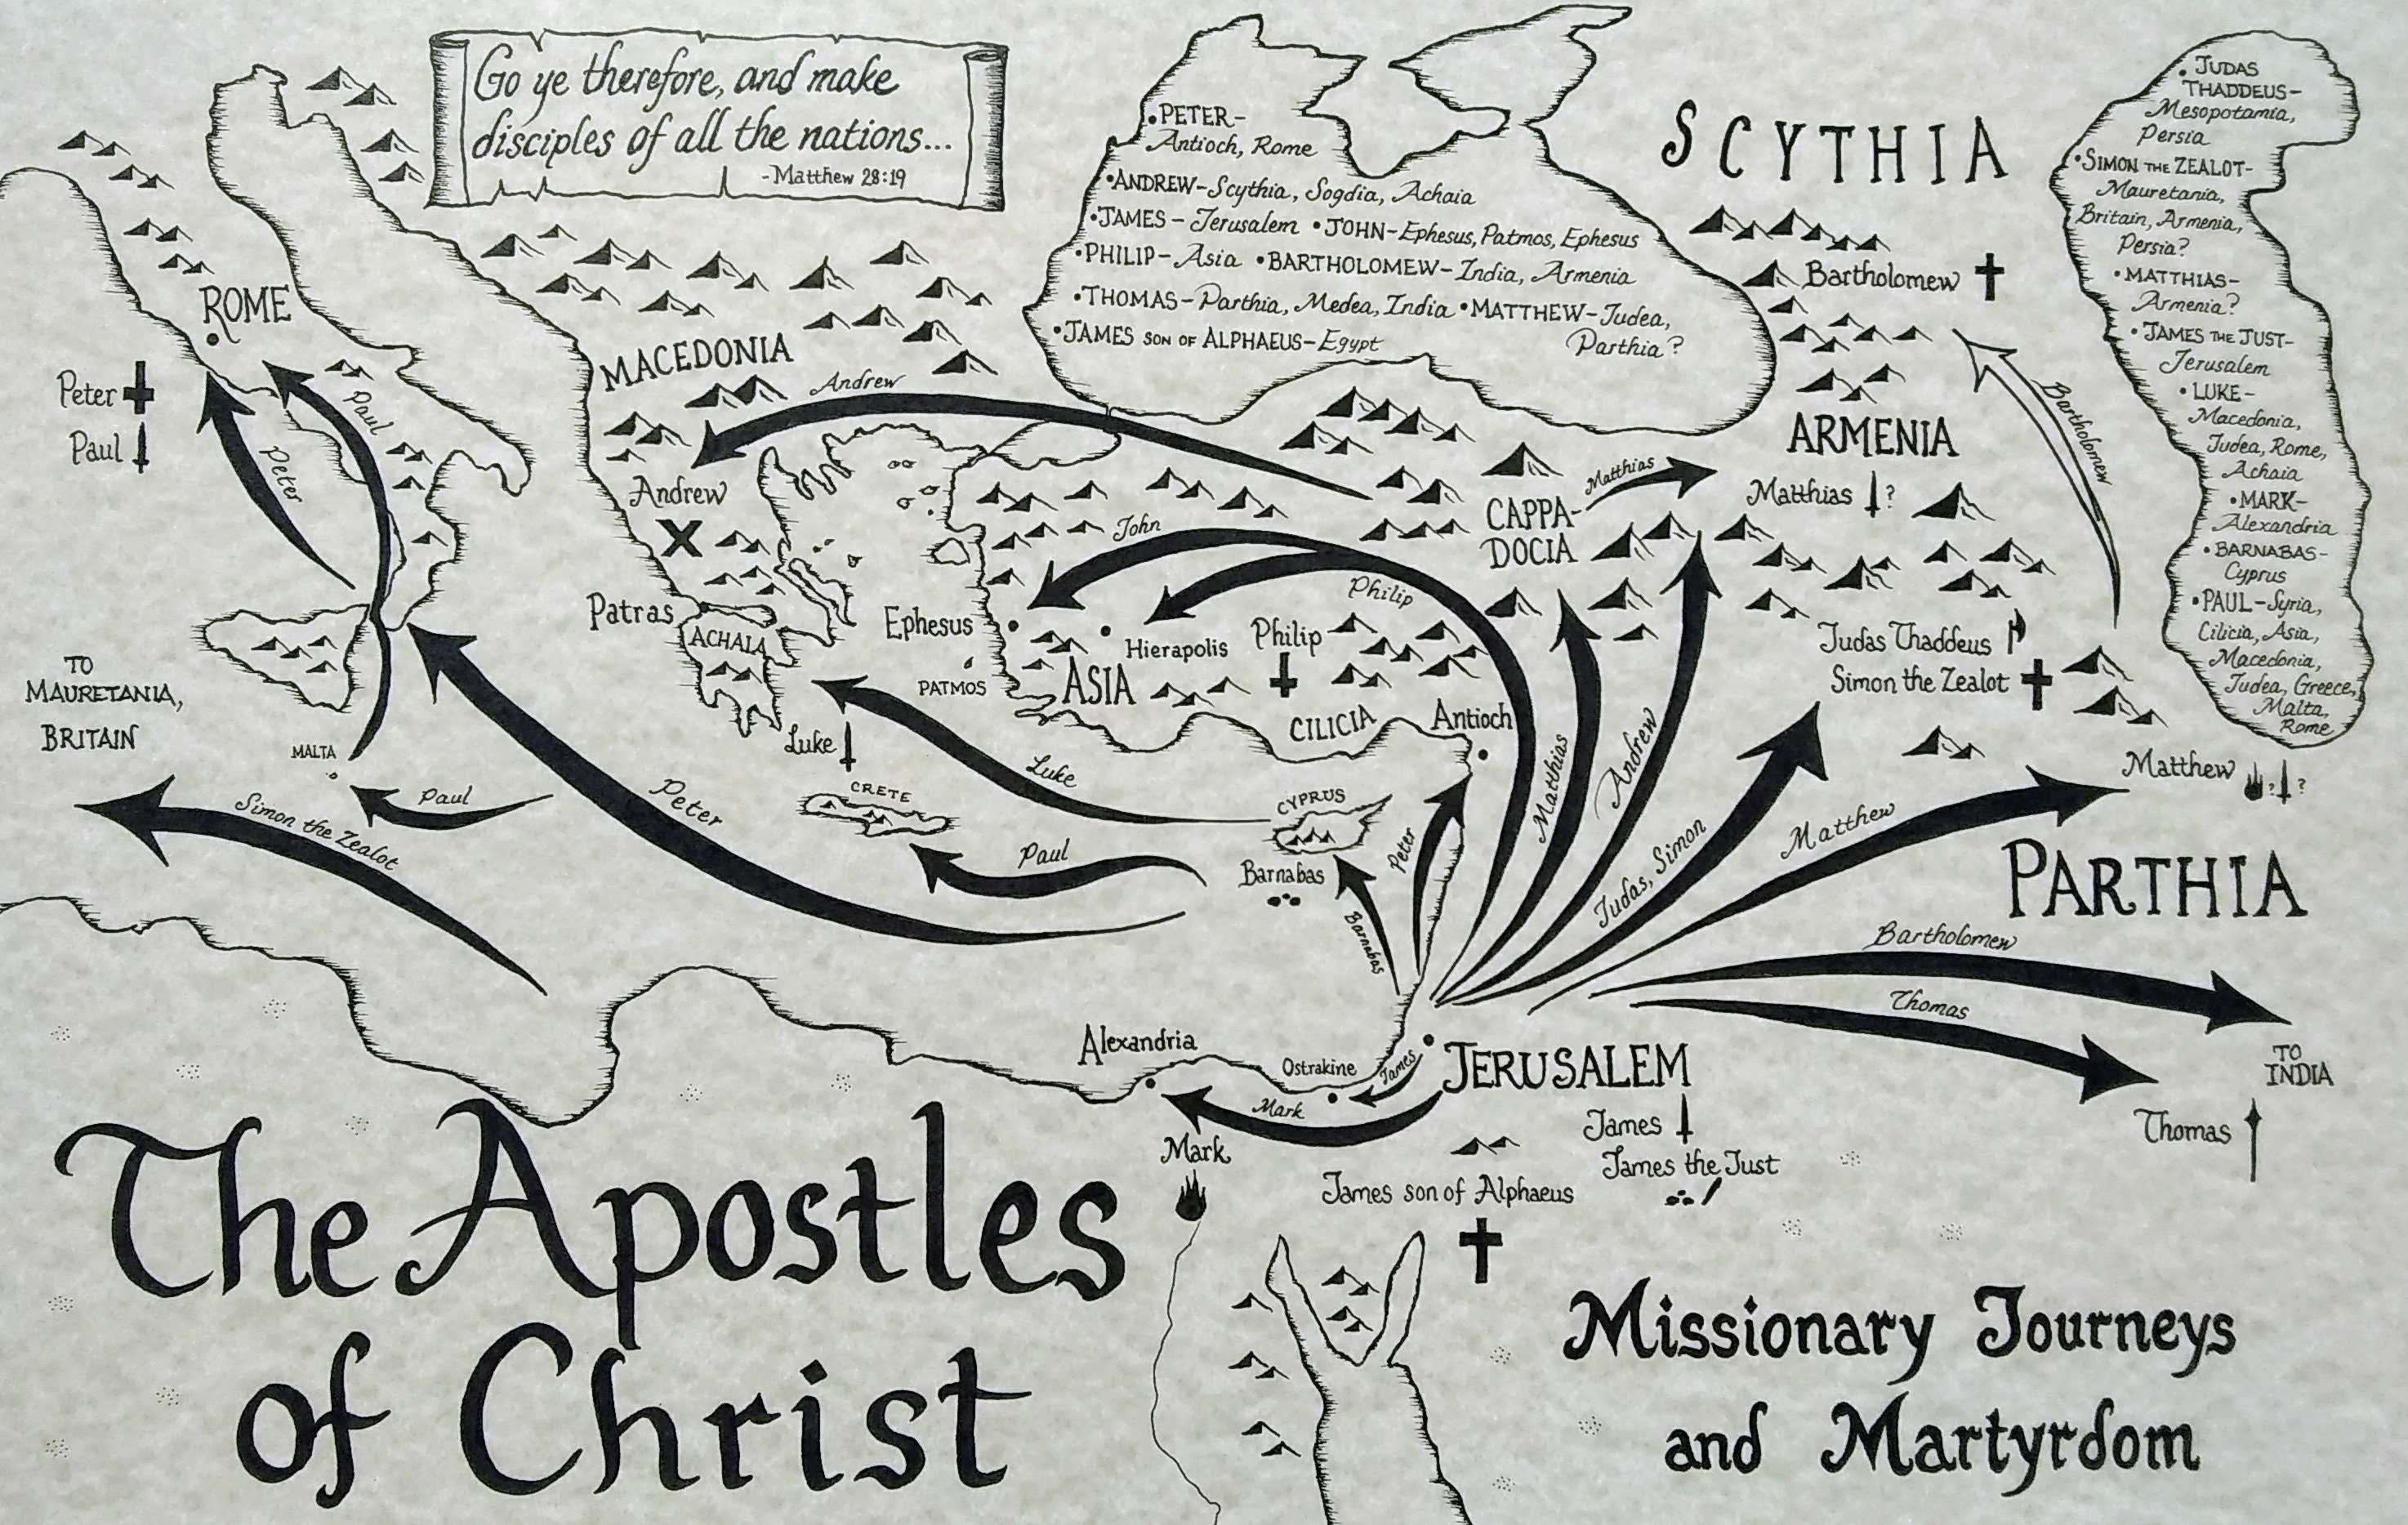 Go ye therefore, and make
disciples of all the nations...
-Matthew 28:19
•PETER-
Antioch, Rome
•ANDREW-Scythia, Sogdia, Achaia
•JAMES - Jerusalem •JOHN-Ephesus, Patmos, Ephesus
•PHILIP-Asia •BARTHOLOMEW-India, Armenia
•THOMAS-Parthia, Medea, India •MATTHEW-Judea,
Parthia?
•JAMES SON OF ALPHAEUS-Egypt
SCYTHIA
•JUDAS
THADDEUS-
Mesopotamia,
Persia
•SIMON THE ZEALOT-
Mauretania,
Britain, Armenia,
Persia?
•MATTHIAS-
Armenia?
•JAMES THE JUST-
Jerusalem
•LUKE-
Macedonia,
Judea, Rome,
Achaia
•MARK-
Alexandria
•BARNABAS-
Cyprus
•PAUL-Syria,
Cilicia, Asia,
Macedonia,
Judea, Greece,
Malta,
Rome
Bartholomew
ROME
MACEDONIA
Andrew
Peter
Paul
Paul
Peter
ARMENIA
Bartholomew
Andrew
Matthias
CAPPA-
DOCIA
Matthias ?
John
Philip
Patras
ACHAIA
Ephesus
Hierapolis
Philip
PATMOS
ASIA
CILICIA
Antioch
Judas Thaddeus
Simon the Zealot
TO
MAURETANIA,
BRITAIN
MALTA
Luke
Luke
CRETE
CYPRUS
Paul
Simon the Zealot
Peter
Paul
Barnabas
Barnabas
Peter
Matthias
Andrew
Judas, Simon
Matthew
Matthew ? ?
PARTHIA
Bartholomew
Thomas
TO
INDIA
Thomas
Alexandria
Ostrakine
James
JERUSALEM
Mark
Mark
James
James the Just
James son of Alphaeus
The Apostles
of Christ
Missionary Journeys
and Martyrdom